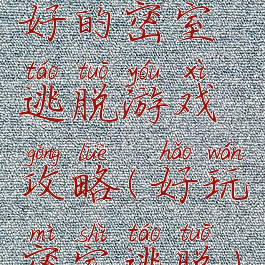 好的密室
táo tuō yóu xì
逃脱游戏
gōng lüè hǎo wán
攻略(好玩
mì shì táo tuō
密室逃脱)